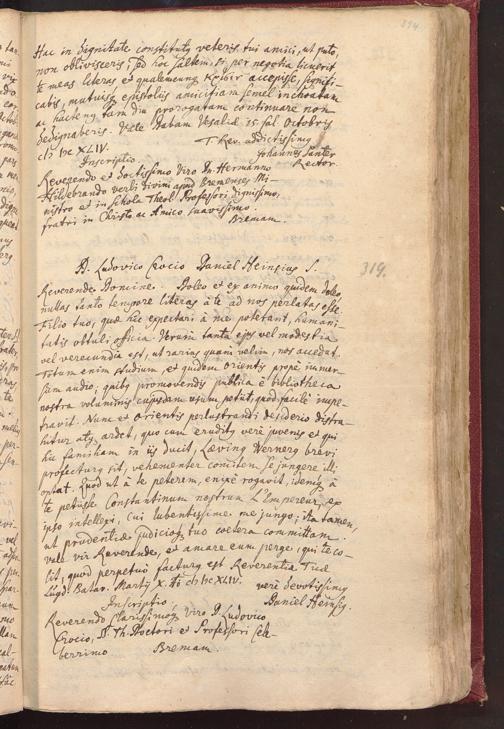 394
Hac in dignitate constitutq veteris tui amici, ut puto,
non oblivisceris; sed hoc saltem, si per negotia licuerit
te meas literas et qualemcunq accepisse, signifi-
cabis, mutuisq epistolis amicitiam semel inchoatam
ac hactenq tam diu prorogatam continuare non
dedignaberis. Vale Dabam Vesaliæ 15 Octobris
cIɔ Iɔc XLIV. T. Rev. addictissimq
Johannes Santer
Inscriptio Rector
Reverendo et Doctissimo Viro Dn. Hermanno
Hildebrando verbi divini apud Bremenses Mi-
nistro et in schola Theol. Professori dignissimo,
fratri in Christo ac Amico suavissimo.
Bremam.
D. Ludovico Crocio Daniel Heinsius S. 319.
Reverende Domine. Doleo et ex animo quidem doleo,
nullas tanto tempore literas à te ad nos perlatas esse.
Filio tuo, quæ hic expectari à me poterant, humani-
tatis obtuli officia. Verum tanta ejq vel modestia
vel verecundia est, ut rarius quam velim, nos accedat.
Totum enim studium, et quidem Orientis propè immen-
sum audio, quibq promovendis publica è bibliotheca
nostra voluminis cujusdam usum petiit, quod facilè impe-
travit. Nunc et Orientis perlustrandi desiderio distra-
hitur atq ardet, quo cum eruditq verè juvenis et qui
hic familiam in ijs ducit, Lævinq Wernerq brevi
profecturq sit, vehementer comitem se jungere illi
optat. Quod ut à te peterem, enixè rogavit, idemq à
te petijsse Constantinum nostrum L'Empereur, ex
ipso intellexi, cui lubentissime me jungo; ita tamen,
ut prudentiæ judicioq tuo cætera committam.
Vale vir Reverende, et amare eum perge, qui te co-
lit, quod perpetuò facturq est Reverentiæ Tuæ
Lugd. Batav. Martij X. cIɔ Iɔc XLIV. verè devotissimq
Inscriptio Daniel Heinsiq.
Reverendo Clarissimoq Viro D. Ludovico
Crocio, SS. Th. Doctori et Professori Cele-
berrimo Bremam.